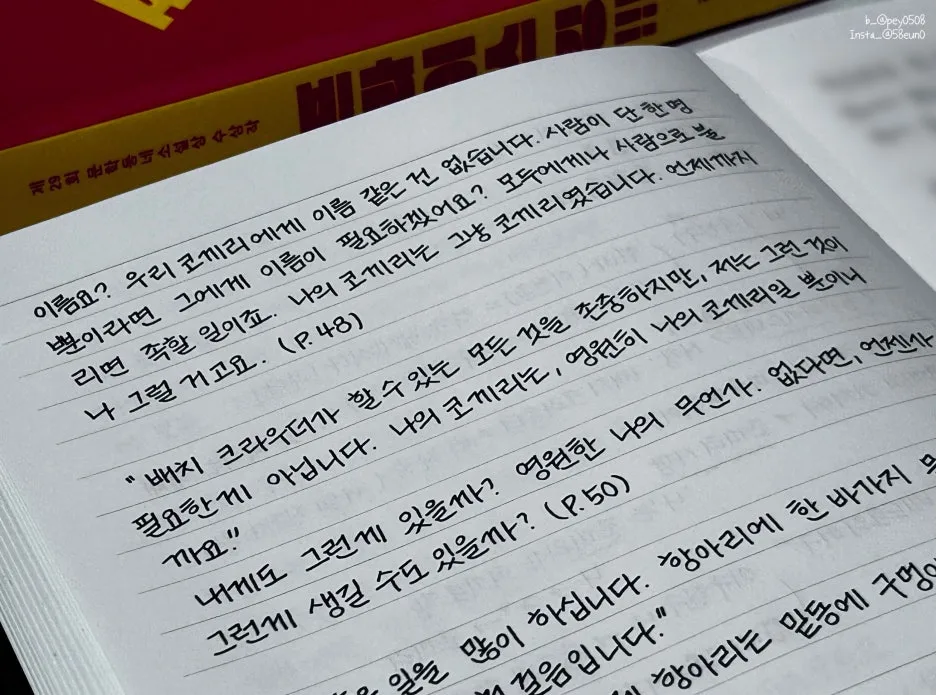 b_@pey0508
Insta_@58eun0
제29회 문학동네소설상 수상작
이름요? 우리 코끼리에게 이름 같은 건 없습니다. 사람이 단 한 명
뿐이라면 그에게 이름이 필요하겠어요? 모두에게나 사람으로 불
리면 족할 일이죠. 나의 코끼리는 그냥 코끼리였습니다. 언제까지
나 그럴 거고요. (P.48)
"배치 크라우더가 할 수 있는 모든 것을 존중하지만, 저는 그런 것이
필요한게 아닙니다. 나의 코끼리는, 영원히 나의 코끼리일 뿐이니
까요."
내게도 그런게 있을까? 영원한 나의 무언가. 없다면, 언젠가
그런게 생길 수도 있을까? (P.50)
일을 많이 하십니다. 항아리에 한 바가지
걸음입니다."
항아리는 밑동에 구멍이